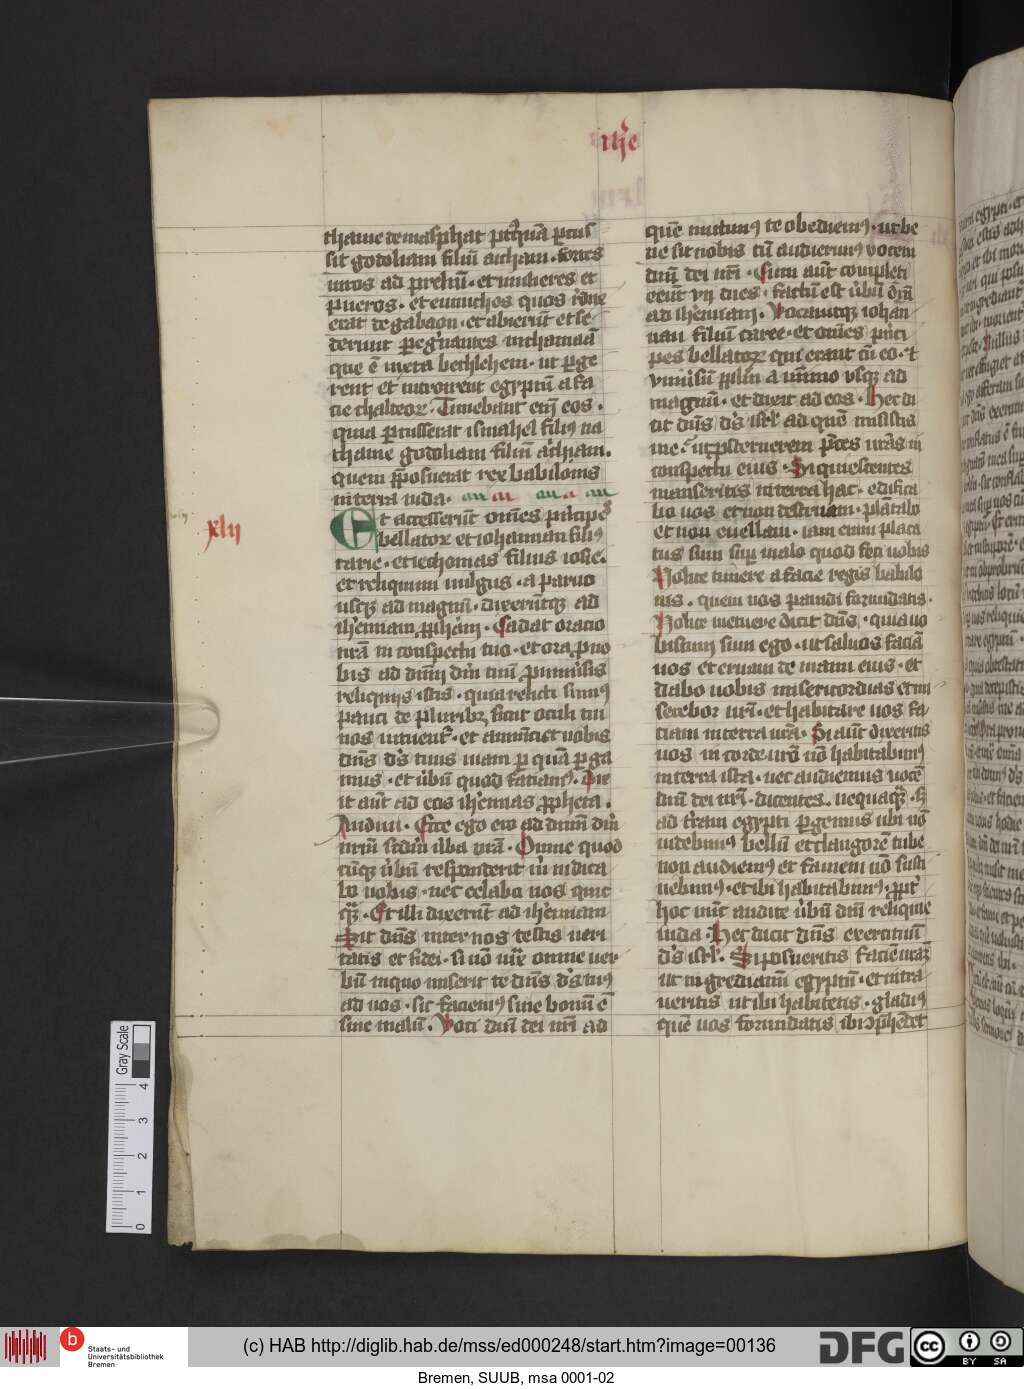 ihe
thanie de masphat pꝰtqua̅ pcus̅
sit godoliam filiu̅ aicham. fortes
uiros ad preliu̅. et mulieres et
pueros. et eunuchos quos rd̅ux
erat de gabaon. et abierut̅ et se
derunt peg̓nantes in chamaa̅
que e̅ iuxta bethlehem. ut pge
rent et introirent egyptu̅ a fa
cie chaldeoꝝ. Timebant eni̅ eos.
quia pcusserat ismahel filiꝰ na
thanie godoliam filiu̅ aicham.
quem p̅posuerat rex babilonis
in terra iuda.
xlii
Et accesserut̅ om̅es pri̅cipes
bellatoꝝ et iohannan filiꝰ
caree. et iechonias filius iosie.
et reliquum uulgus. a paruo
usqꝫ ad magnu̅. dixeru̅tqꝫ ad
ih̓emiam pph̅am. Cadat oracio
nr̅a in conspectu tuo. et ora pro no
bis ad dn̅m dm̅ tuu̅ p uniu̅sis
reliquijs istis. quia relicti sumꝰ
pauci de pluribꝫ sicut oculi tui
nos intuent᷑. et annu̅ciet nobis
dn̅s ds̅ tuus uiam p qua̅ pga
mus. et u̅bu̅ quod faciamꝰ. Dix
it aut̅ ad eos ih̓emias ppheta.
Audiui. Ecce ego oro ad dn̅m dm̅
nr̅m scd̅m u̅ba ur̅a. Omne quod
cu̅qꝫ u̅bu̅ responderit m̅ indica
bo uobis. nec celabo uos quic
qᷓ. Et illi dixerut̅ ad ih̓emiam
Sit dn̅s inter nos testis ueri
tatis et fidei. si no̅ iux̅ omne uer
bu̅ in quo miserit te dn̅s ds̅ tuꝰ
ad nos. sic faciemꝰ siue bonu̅ e̅
siue malu̅. Voci dn̅i dei nr̅i ad
que̅ mittimꝰ te obediemꝰ. ut be
ne sit nobis cu̅ audierimꝰ uocem
dn̅i dei nr̅i. Cum aut̅ completi
eent̅ vii dies. factu̅ est u̅bu̅ dn̅i
ad ih̓emiam. Vocauitqꝫ iohan
nan filiu̅ caree. et om̅es pri̅ci
pes bellatoꝝ qui erant cu̅ eo. et
vniu̅su̅ pplm̅ a mi̅imo vsqꝫ ad
magnu̅. et dixit ad eos. Hec di
cit dn̅s ds̅ isrl̅ ad que̅ misistis
me. ut psternerem pces ur̅as in
conspectu eius. Si quiescentes
manseritis in terra hac. edifica
bo uos et non destruam. pla̅tabo
et non euellam. iam enim placa
tus sum sup malo quod feci uobis
Nolite timere a facie regis babilo
nis. quem uos pauidi formidatis.
Nolite metuere dicit dn̅s. quia uo
biscum sum ego. ut saluos facia̅
uos et eruam de manu eius. et
dabo uobis misericordias et mi
serebor ur̅i. et habitare uos fa
ciam in terra ur̅a. Si aut̅ dixeritis
uos in corde ur̅o no̅ habitabimꝰ
in terra ista. nec audiemus uoce̅
dn̅i dei nr̅i. dicentes. nequaqᷓ. s̅
ad tr̅am egypti pgemus ubi no̅
uidebimꝰ bellu̅ et clangore̅ tube
non audiemꝰ et famem no̅ susti
nebimꝰ. et ibi habitabimꝰ. ppt̓
hoc nu̅c audite u̅bu̅ dn̅i reliquie
iuda. Hec dicit dn̅s exercituu̅
ds̅ isrl̅. Si posueritis facie̅ ur̅aꝫ
ut ingrediamini egyptu̅. et intra
ueritis ut ibi habitetis. gladiꝰ
que̅ uos formidatis ibi ꝯphe̅det
Gray Scale
0 1 2 3 4
b Staats- und
Universitätsbibliothek
Bremen
(c) HAB http://diglib.hab.de/mss/ed000248/start.htm?image=00136
DFG
cc BY SA
Bremen, SUUB, msa 0001-02